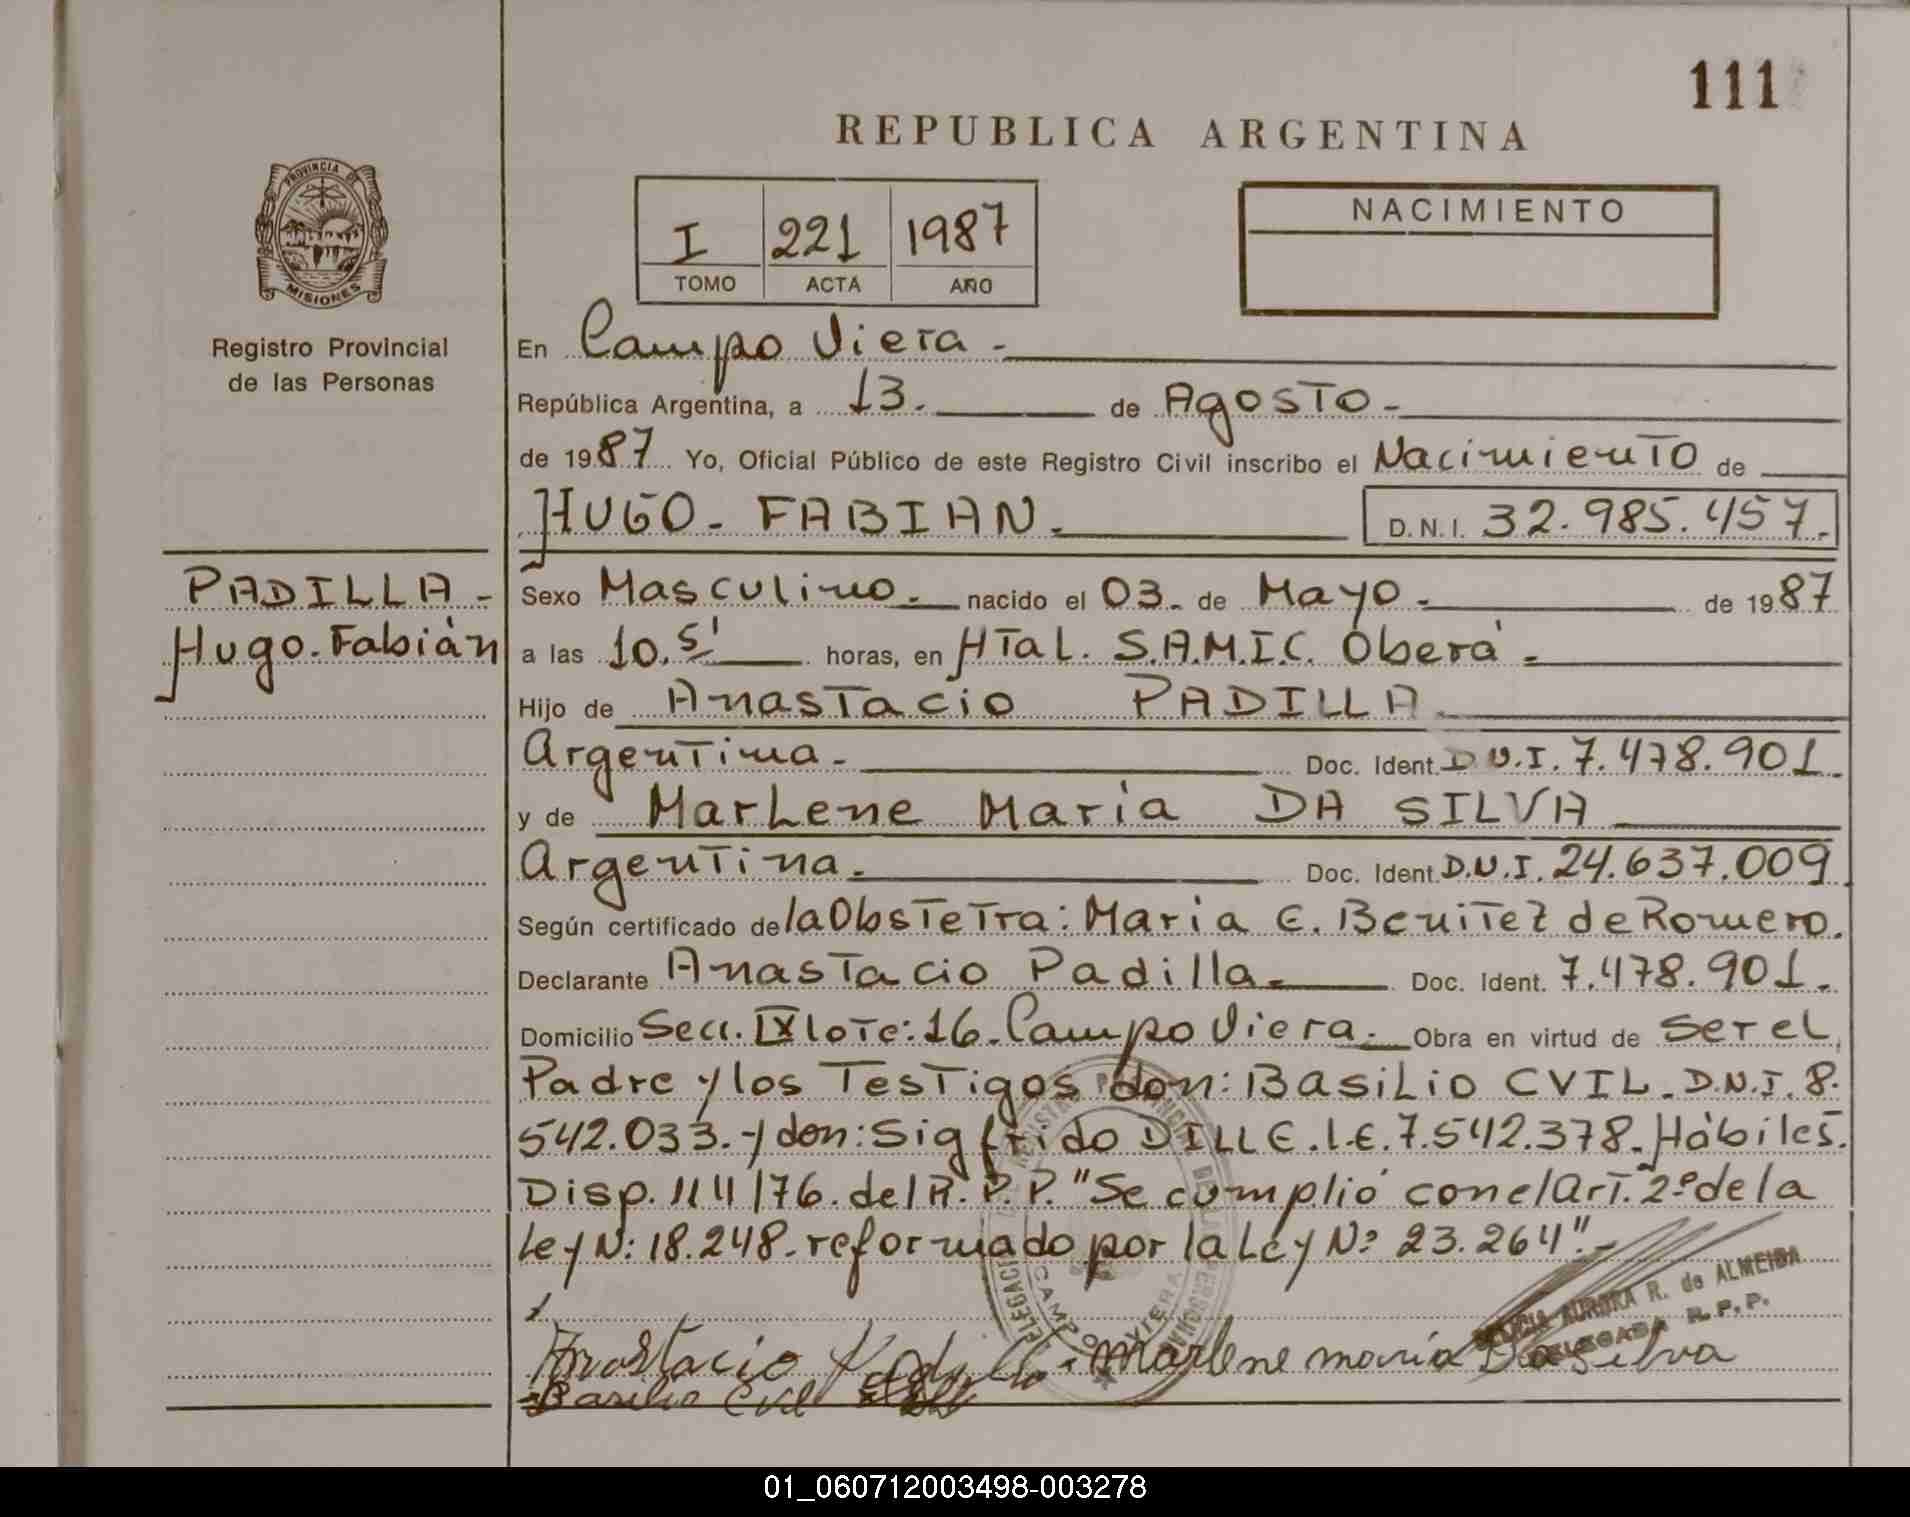 111
REPUBLICA ARGENTINA
PROVINCIA DE
MISIONES
Registro Provincial
de las Personas
I 221 1987
TOMO ACTA AÑO
NACIMIENTO
En Campo Viera -
República Argentina, a 13. de Agosto -
de 1987 Yo, Oficial Público de este Registro Civil inscribo el Nacimiento de
HUGO - FABIAN. D.N.I. 32.985.457.-
PADILLA -
Hugo. Fabián
Sexo Masculino. nacido el 03. de Mayo. de 1987
a las 10,5' horas, en HTal. S.A.M.I.C. Oberá -
Hijo de Anastacio PADILLA.
Argentina. Doc. Ident. D.N.I. 7.478.901.
y de MarLene Maria DA SILVA
Argentina. Doc. Ident. D.N.I. 24.637.009
Según certificado de la Obstetra: Maria E. Benitez de Romero.
Declarante Anastacio Padilla. Doc. Ident. 7.478.901.-
Domicilio Secc. IX lote: 16. Campo Viera. Obra en virtud de ser el
Padre y los Testigos don: Basilio CVIL - D.N.I. 8.
542.033.- y don: Sigfrido DILLE. L.E. 7.542.378. Hábiles.
Disp. 114/76. del R.P.P. "Se cumplió con el Art. 2º de la
Ley N: 18.248. reformado por la Ley Nº 23.264".-
Anastacio Padilla - Marlene maria Da Silva
Basilio Cvil
AURORA R. de ALMEIDA
DELEGADA R.P.P.
CAMPO VIERA
01_060712003498-003278